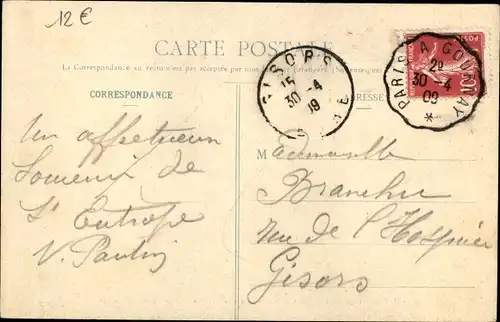 12 €
CARTE POSTALE
La Correspondance au recto n'est pas acceptée par tous
CORRESPONDANCE
ADRESSE
GISORS
15
30 -4
09
EURE
PARIS A GOURNAY
2º
30 -4
09
*
Un affectueux
Souvenir de
St Eutrope
V.
Mademoiselle
Branchu
Rue de l'Hospice
Gisors